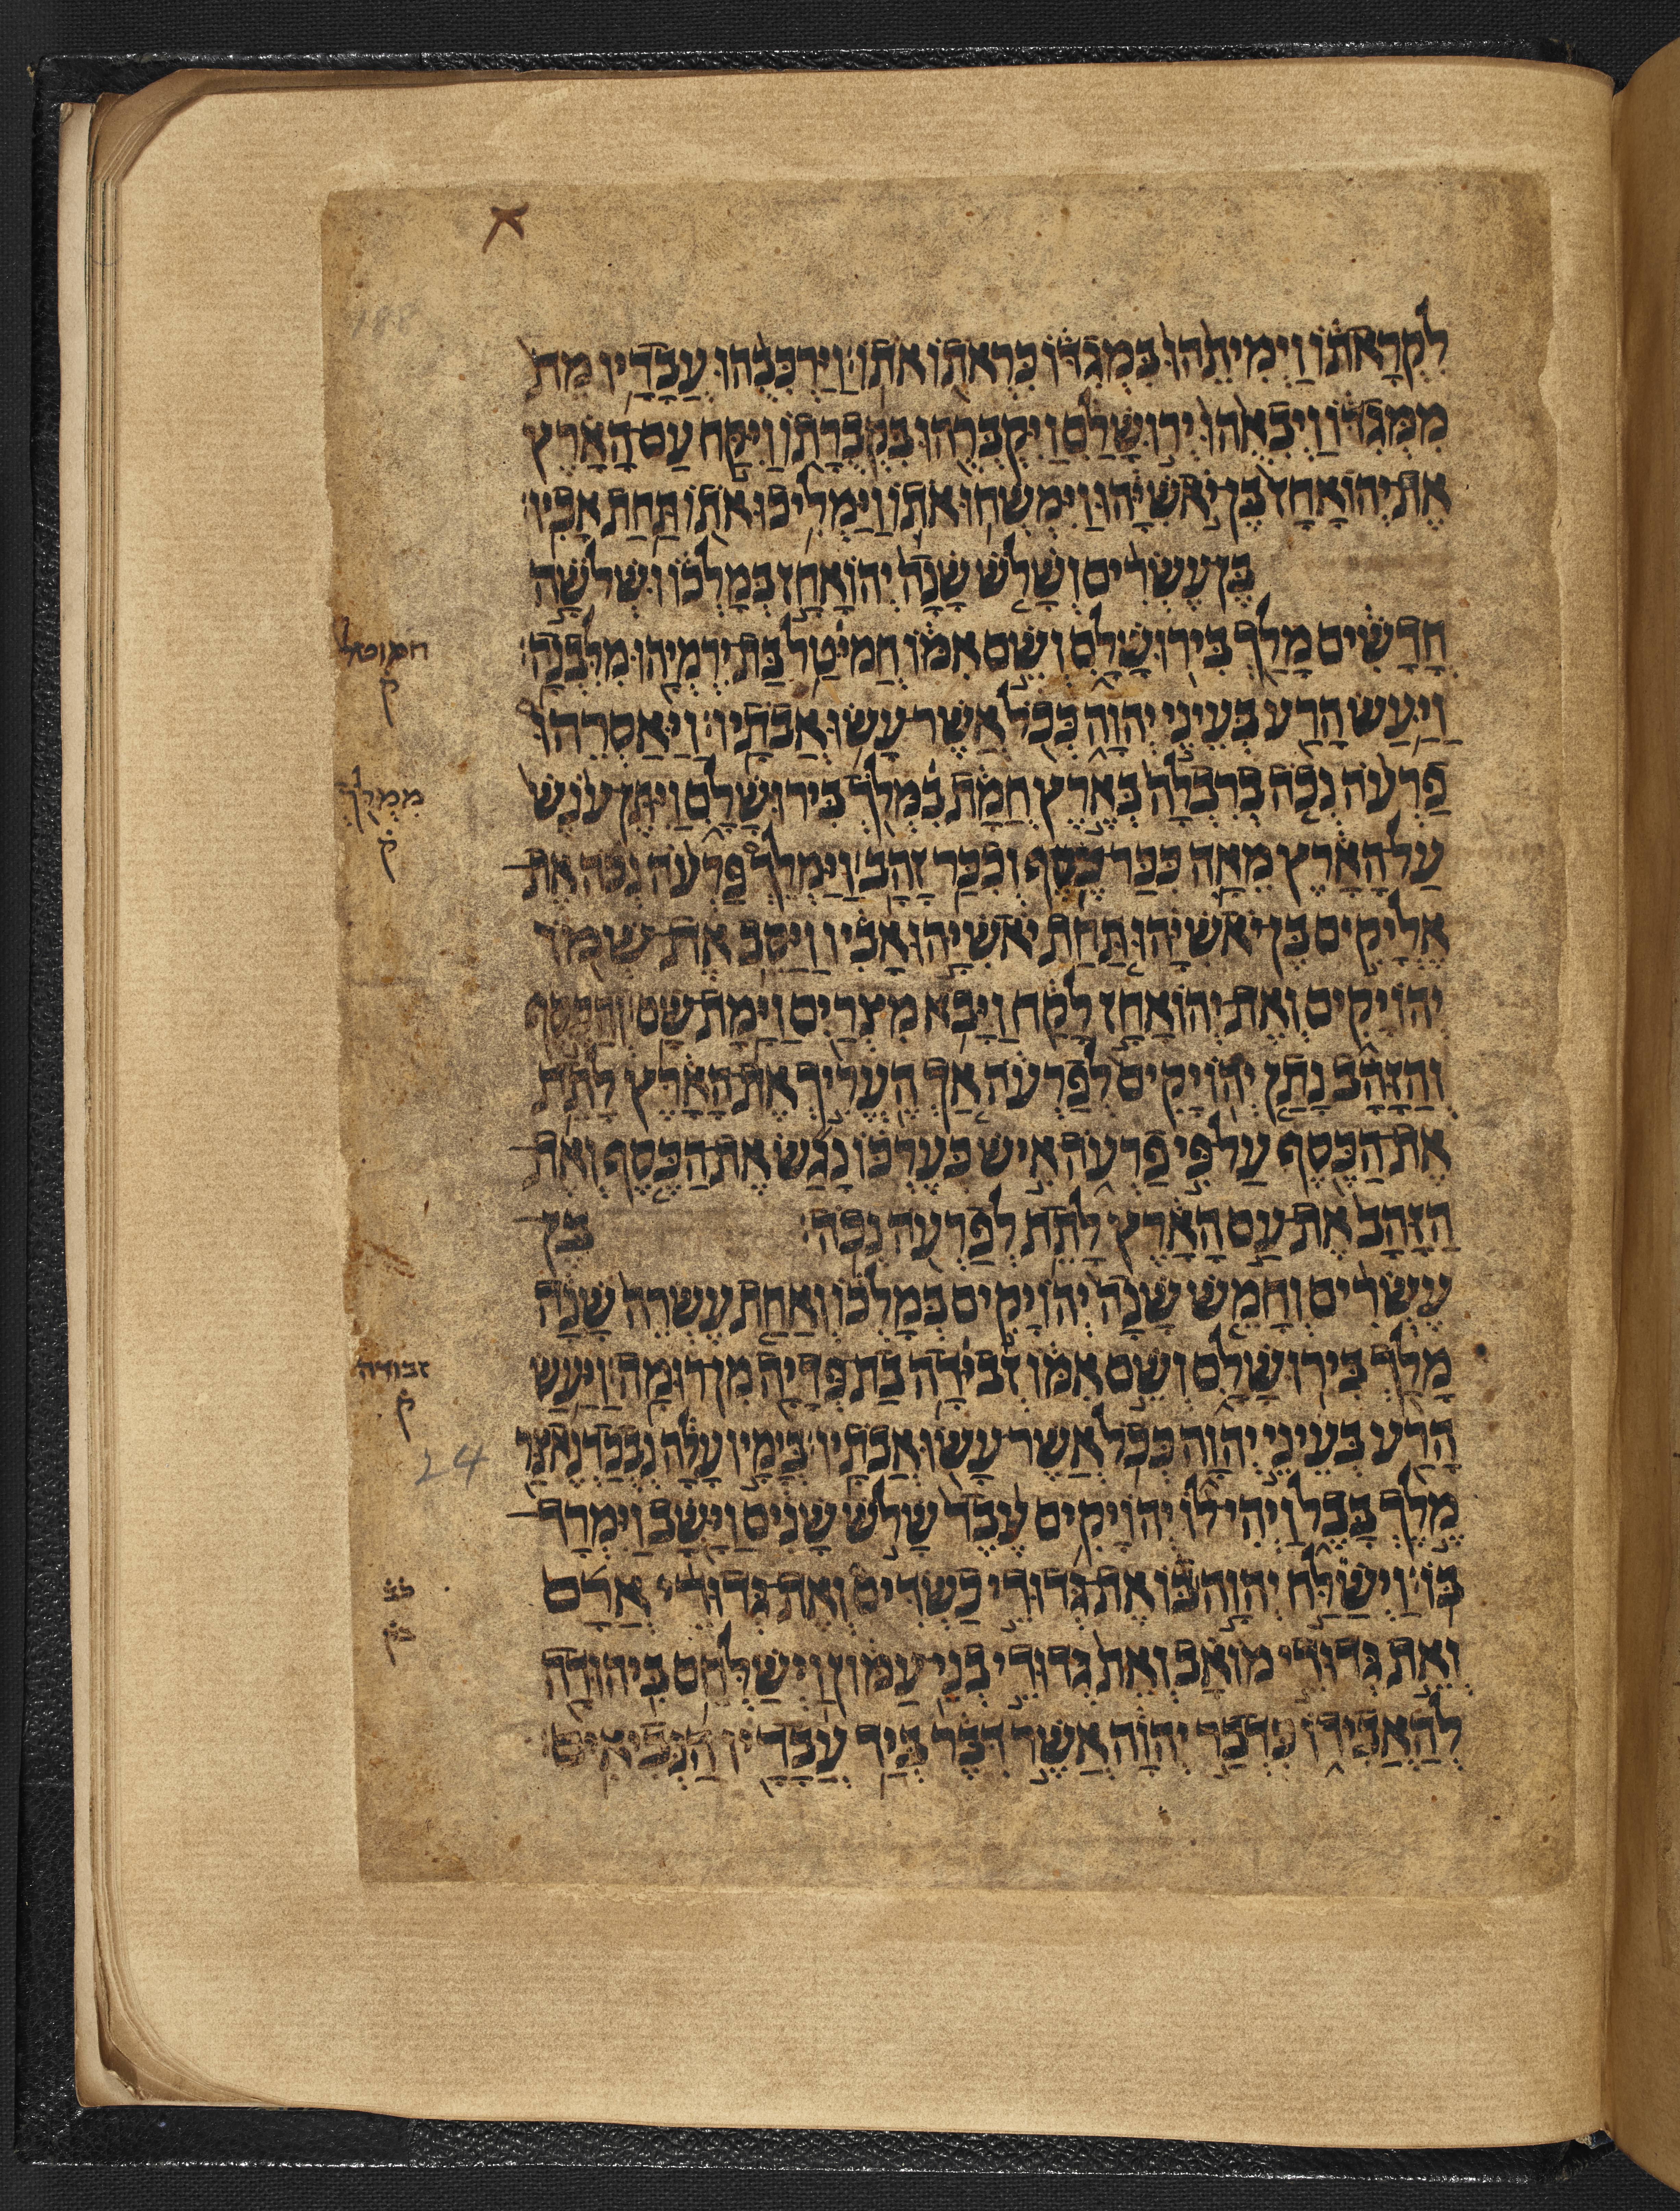 לִקְרָאתוֹ וַיְמִיתֵהוּ בִּמְגִדּוֹ כִּרְאֹתוֹ אֹתוֹ׃ וַיַּרְכִּבֻהוּ עֲבָדָיו מֵת
מִמְּגִדּוֹ וַיְבִאֻהוּ יְרוּשָׁלַםִ וַיִּקְבְּרֻהוּ בִּקְבֻרָתוֹ וַיִּקַּח עַם הָאָרֶץ
אֶת־יְהוֹאָחָז בֶּן־יֹאשִׁיָּהוּ וַיִּמְשְׁחוּ אֹתוֹ וַיַּמְלִיכוּ אֹתוֹ תַּחַת אָבִיו׃
בֶּן עֶשְׂרִים וְשָׁלֹשׁ שָׁנָה יְהוֹאָחָז בְּמָלְכוֹ וּשְׁלֹשָׁה
חֳדָשִׁים מָלַךְ בִּירוּשָׁלָםִ וְשֵׁם אִמּוֹ חֲמיטַל בַּת יִרְמְיָהוּ מִלִּבְנָה׃
חמוטל
ק
וַיַּעַשׂ הָרַע בְּעֵינֵי יְהוָה כְּכֹל אֲשֶׁר עָשׂוּ אֲבֹתָיו׃ וַיַּאַסְרֵהוּ
פַרְעֹה נְכֹה בְרִבְלָה בְּאֶרֶץ חֲמָת בִּמְלֹךְ בִּירוּשָׁלָםִ וַיִּתֶּן עֹנֶשׁ
ממלך
ק
עַל הָאָרֶץ מֵאָה כִכַּר כֶּסֶף וְכִכַּר זָהָב׃ וַיַּמְלֵךְ פַּרְעֹה נְכֹה אֶת־
אֶלְיָקִים בֶּן־יֹאשִׁיָּהוּ תַּחַת יֹאשִׁיָּהוּ אָבִיו וַיַּסֵּב אֶת־שְׁמוֹ
יְהוֹיָקִים וְאֶת־יְהוֹאָחָז לָקָח וַיָּבֹא מִצְרַיִם וַיָּמָת שָׁם׃ וְהַכֶּסֶף
וְהַזָּהָב נָתַן יְהוֹיָקִים לְפַרְעֹה אַךְ הֶעֱרִיךְ אֶת־הָאָרֶץ לָתֵת
אֶת־הַכֶּסֶף עַל פִּי פַרְעֹה אִישׁ כְּעֶרְכּוֹ נָגַשׂ אֶת־הַכֶּסֶף וְאֶת־
הַזָּהָב אֶת־עַם הָאָרֶץ לָתֵת לְפַרְעֹה נְכֹה׃ בֶּן־
עֶשְׂרִים וְחָמֵשׁ שָׁנָה יְהוֹיָקִים בְּמָלְכוֹ וְאַחַת עֶשְׂרֵה שָׁנָה
מָלַךְ בִּירוּשָׁלָםִ וְשֵׁם אִמּוֹ זְבִידָה בַת פְּדָיָה מִן־רוּמָה׃ וַיַּעַשׂ
זבודה
ק
הָרַע בְּעֵינֵי יְהוָה כְּכֹל אֲשֶׁר עָשׂוּ אֲבֹתָיו׃ בְּיָמָיו עָלָה נְבֻכַדְנֶאצַּר
24
מֶלֶךְ בָּבֶל וַיְהִי לוֹ יְהוֹיָקִים עֶבֶד שָׁלֹשׁ שָׁנִים וַיָּשָׁב וַיִּמְרָד־
בּוֹ׃ וַיְשַׁלַּח יְהוָה בּוֹ אֶת־גְּדוּדֵי כַשְׂדִּים וְאֶת־גְּדוּדֵי אֲרָם
וְאֵת גְּדוּדֵי מוֹאָב וְאֵת גְּדוּדֵי בְנֵי עַמּוֹן וַיְשַׁלְּחֵם בִּיהוּדָה
לְהַאֲבִידוֹ כִּדְבַר יְהוָה אֲשֶׁר דִּבֶּר בְּיַד עֲבָדָיו הַנְּבִיאִים׃